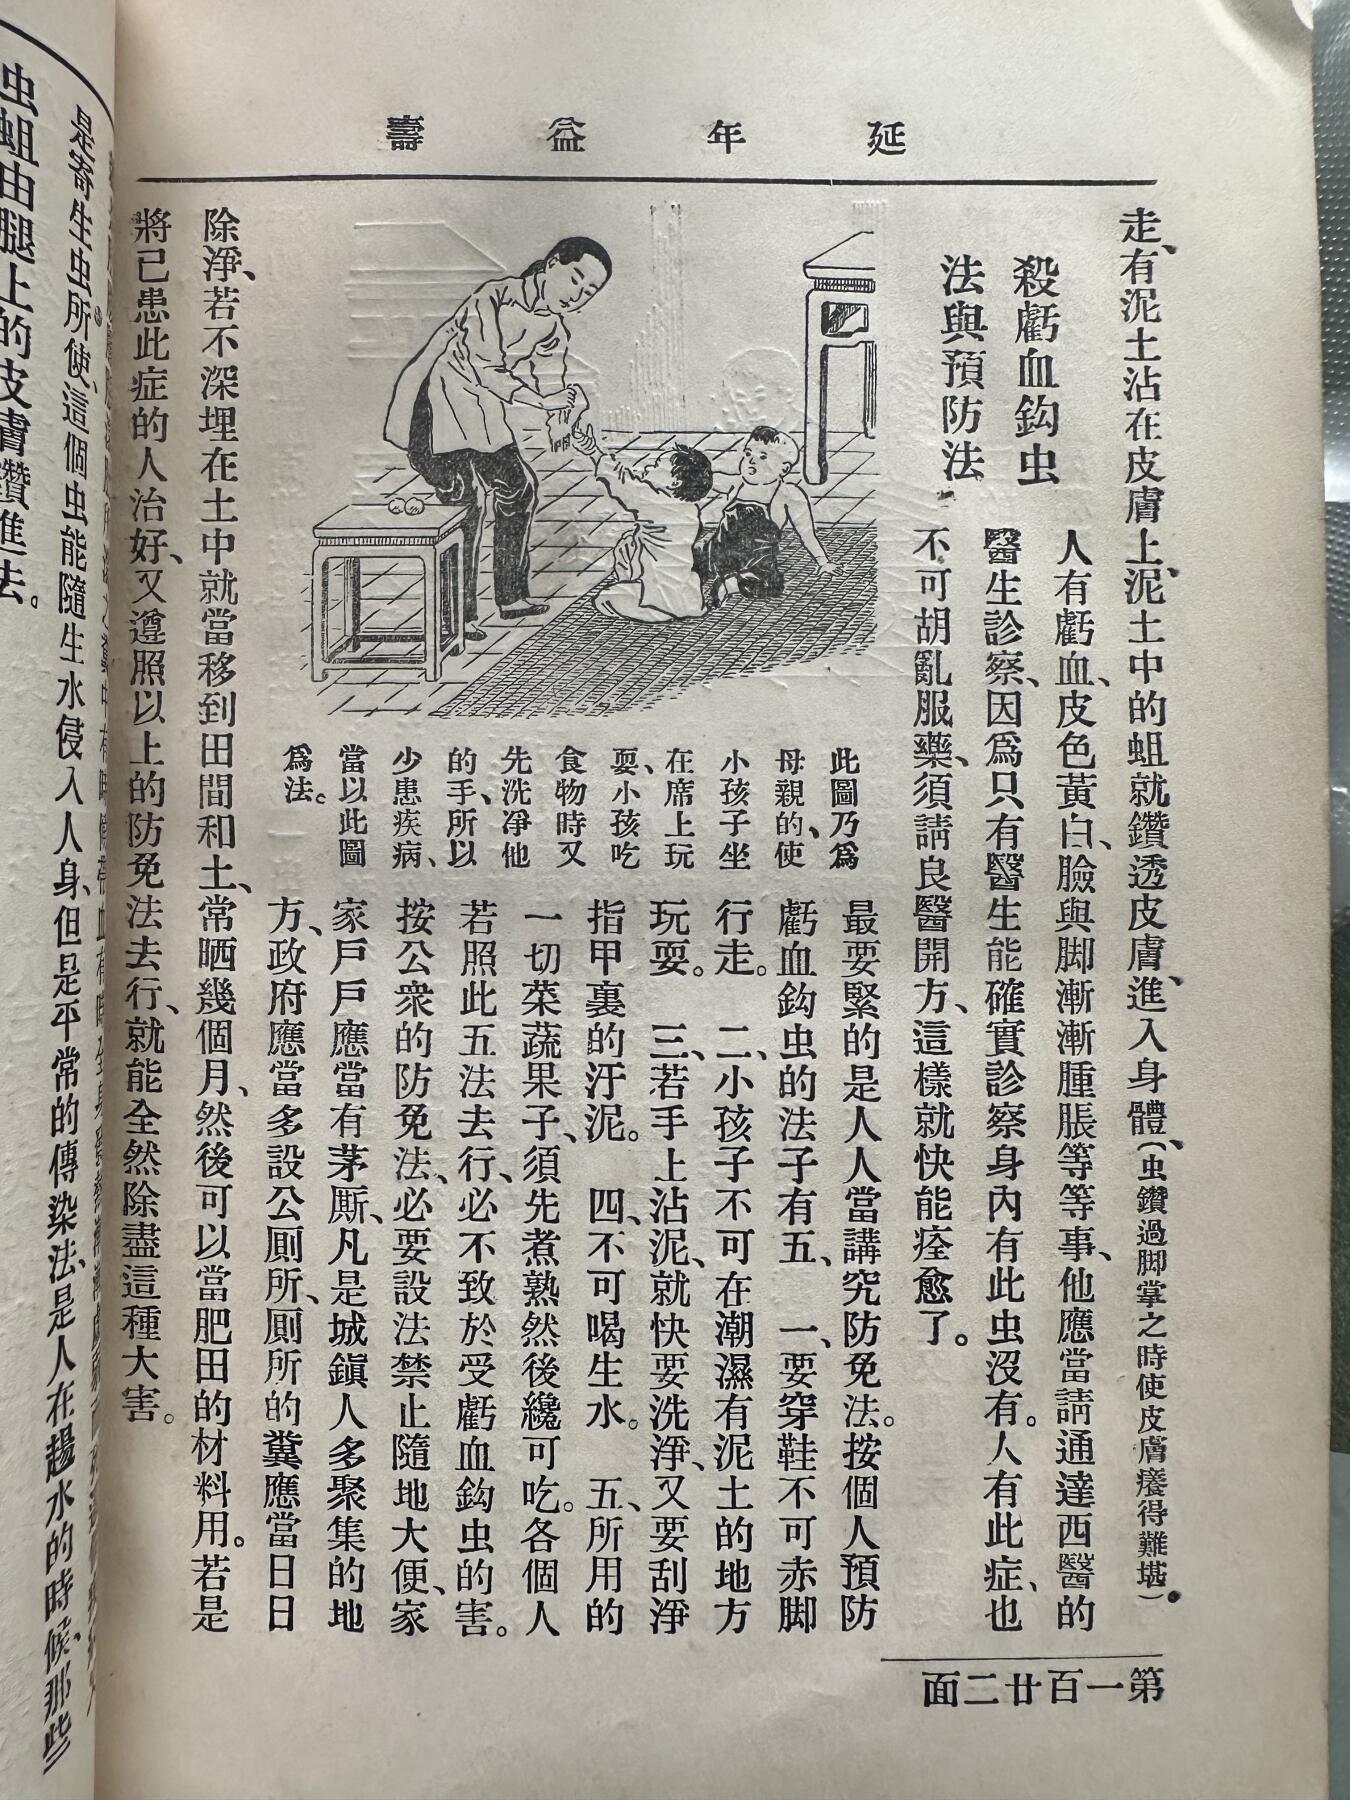 延年益壽
走、有泥土沾在皮膚上、泥土中的蛆就鑽透皮膚、進入身體、(虫鑽過脚掌之時使皮膚癢得難堪)。
殺虧血鈎虫
法與預防法
人有虧血、皮色黃白、臉與脚漸漸腫脹等等事、他應當請通達西醫的
醫生診察、因爲只有醫生能確實診察身內有此虫沒有。人有此症、也
不可胡亂服藥、須請良醫開方、這樣就快能痊愈了。
此圖乃爲
母親的、使
小孩子坐
在席上玩
耍、小孩吃
食物時又
先洗凈他
的手、所以
少患疾病、
當以此圖
爲法。
最要緊的是人人當講究防免法。按個人預防
虧血鈎虫的法子有五、一、要穿鞋不可赤脚
行走。二、小孩子不可在潮濕有泥土的地方
玩耍。三、若手上沾泥、就快要洗淨、又要刮淨
指甲裏的汙泥。四、不可喝生水。五、所用的
一切菜蔬果子、須先煮熟然後纔可吃。各個人
若照此五法去行、必不致於受虧血鈎虫的害。
按公衆的防免法、必要設法禁止隨地大便、家
家戶戶應當有茅厮、凡是城鎭人多聚集的地
方、政府應當多設公厠所、厠所的糞應當日日
除淨、若不深埋在土中就當移到田間和土、常晒幾個月、然後可以當肥田的材料用。若是
將已患此症的人治好、又遵照以上的防免法去行、就能全然除盡這種大害。
第一百廿二面
是寄生虫所使、這個虫能隨生水侵入人身、但是平常的傳染法、是人在趟水的時候、那些
虫蛆由腿上的皮膚鑽進去。